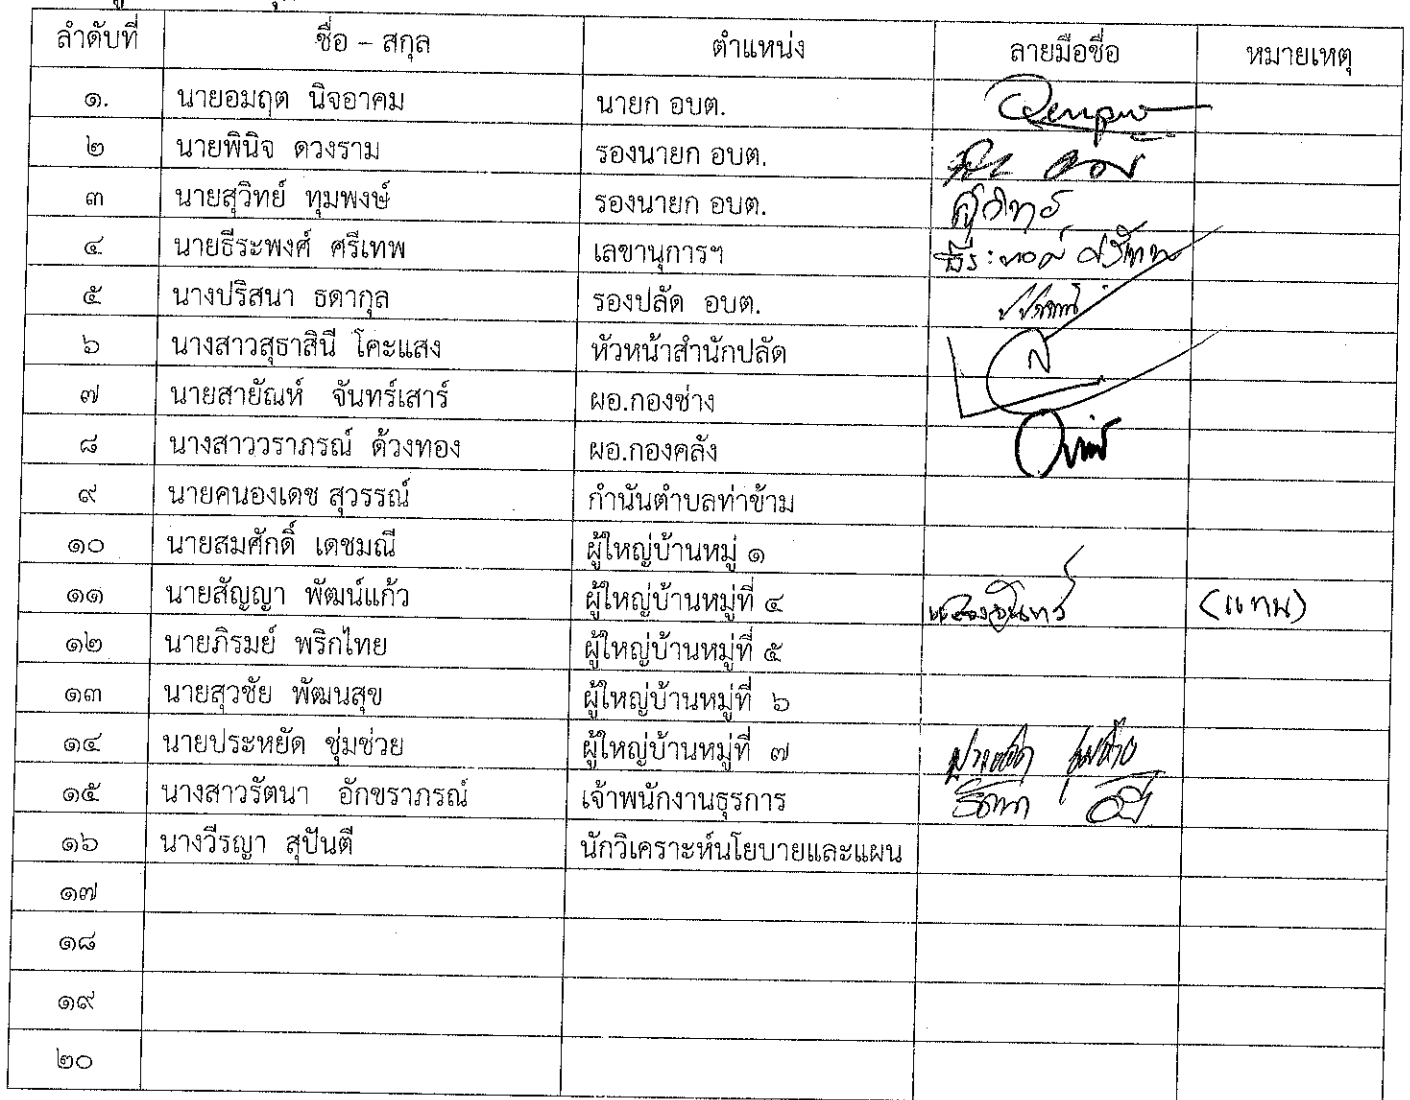 ลำดับที่ ชื่อ – สกุล ตำแหน่ง ลายมือชื่อ หมายเหตุ
๑. นายอมฤต นิจอาคม นายก อบต.
๒ นายพินิจ ดวงราม รองนายก อบต.
๓ นายสุวิทย์ ทุมพงษ์ รองนายก อบต. สุวิทย์
๔ นายธีระพงศ์ ศรีเทพ เลขานุการฯ ธีระพงศ์ ศรีเทพ
๕ นางปริสนา ธดากุล รองปลัด อบต.
๖ นางสาวสุธาสินี โคะแสง หัวหน้าสำนักปลัด
๗ นายสายัณห์ จันทร์เสาร์ ผอ.กองช่าง
๘ นางสาววราภรณ์ ด้วงทอง ผอ.กองคลัง
๙ นายคนองเดช สุวรรณ์ กำนันตำบลท่าข้าม
๑๐ นายสมศักดิ์ เดชมณี ผู้ใหญ่บ้านหมู่ ๑
๑๑ นายสัญญา พัฒน์แก้ว ผู้ใหญ่บ้านหมู่ที่ ๔ (แทน)
๑๒ นายภิรมย์ พริกไทย ผู้ใหญ่บ้านหมู่ที่ ๕
๑๓ นายสุวชัย พัฒนสุข ผู้ใหญ่บ้านหมู่ที่ ๖
๑๔ นายประหยัด ชุ่มช่วย ผู้ใหญ่บ้านหมู่ที่ ๗
๑๕ นางสาวรัตนา อักขราภรณ์ เจ้าพนักงานธุรการ รัตนา
๑๖ นางวีรญา สุปันตี นักวิเคราะห์นโยบายและแผน
๑๗
๑๘
๑๙
๒๐